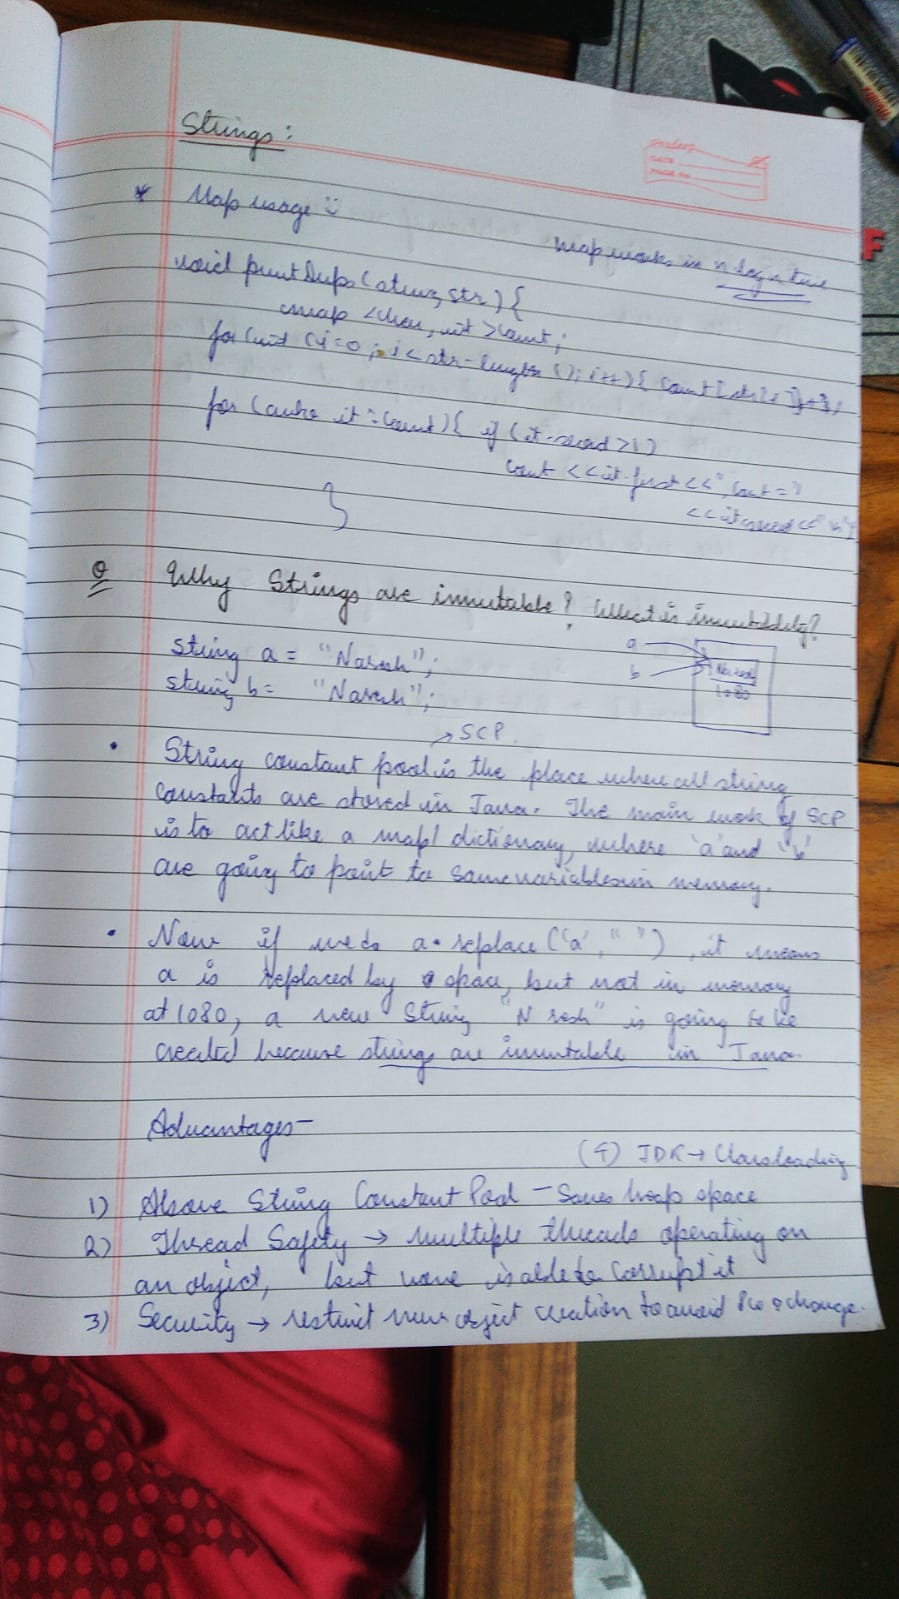 Strings:
* Map usage :-
map works in n log n time
void printDups(string str) {
map <char, int> count;
for (int i=0; i< str.length(); i++) { count[str[i]]++;
for (auto it : count) { if (it.second >1)
cout << it.first <<", cout ="
<<it.second <<" \n";
}
Q Why Strings are immutable? What is immutability?
string a = "Naresh";
string b = "Naresh";
a
b
Naresh
1080
→ SCP.
• String constant pool is the place where all string
constants are stored in Java. The main work of SCP
is to act like a map/dictionary, where 'a' and 'b'
are going to point to same variables in memory.
• Now if we do a.replace('a', " "), it means
a is replaced by space, but not in memory
at 1080, a new String "N resh" is going to be
created because strings are immutable in Java.
Advantages-
(4) JDK → Classloading
1) Above String Constant Pool - Saves heap space
2) Thread Safety → multiple threads operating on
an object, but none is able to corrupt it
3) Security → restrict new object creation to avoid change.